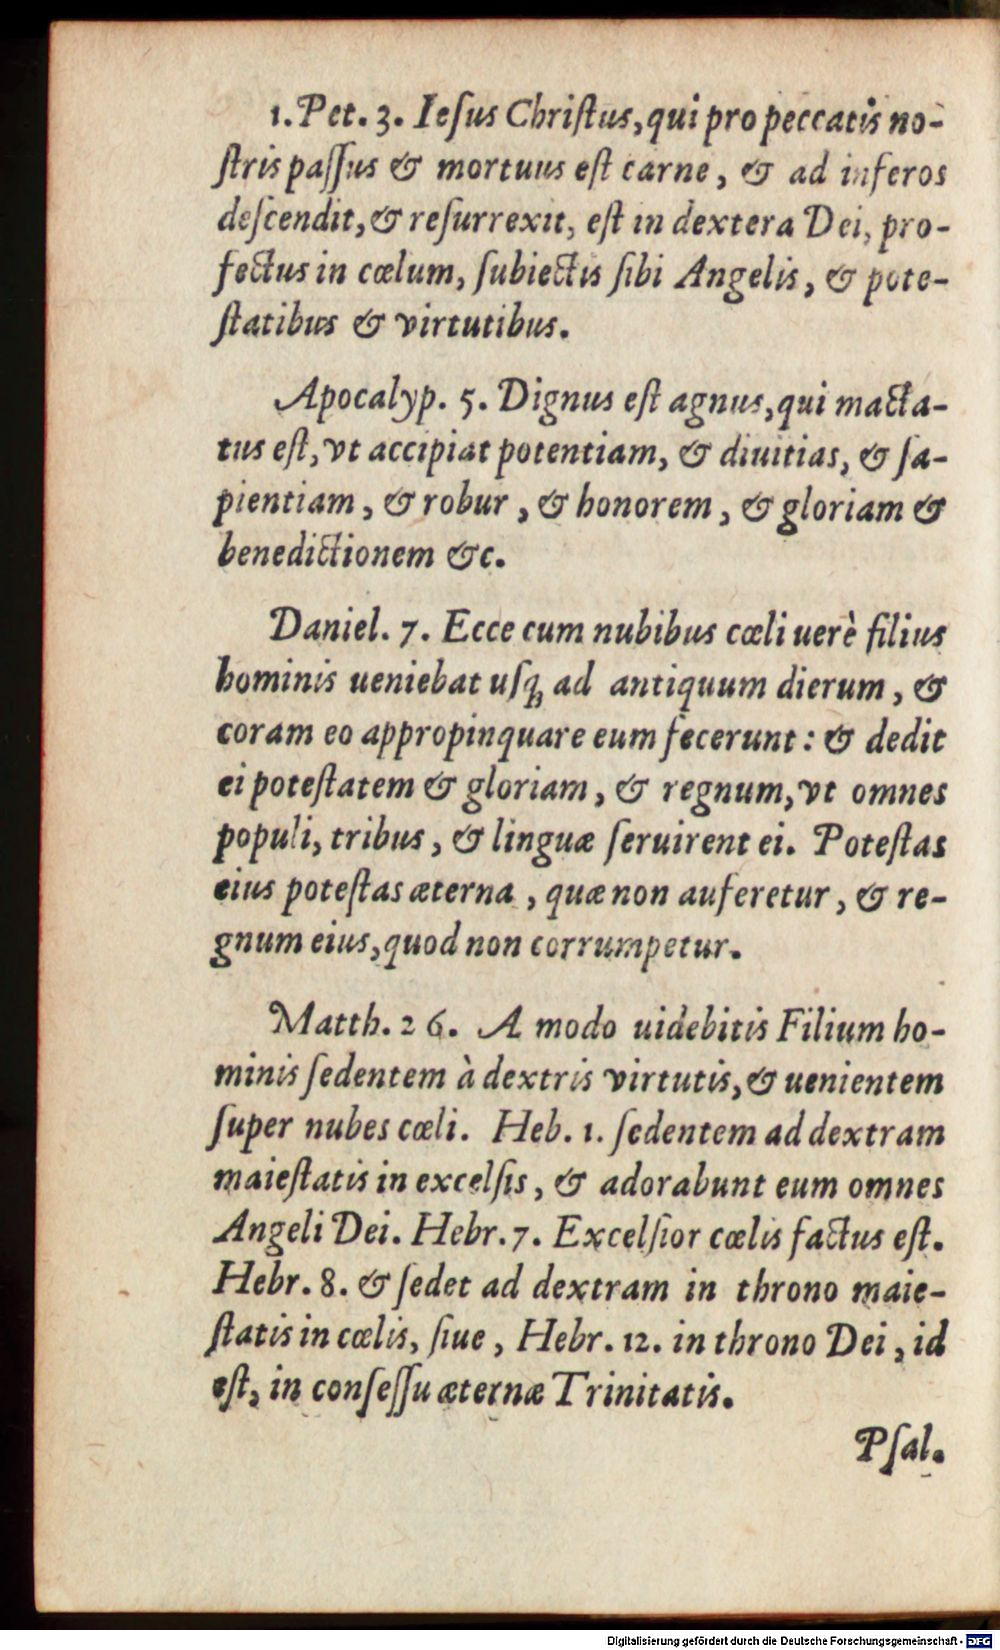 1. Pet. 3. Ieſus Chriſtus, qui pro peccatis no-
ſtris paſſus & mortuus eſt carne, & ad inferos
deſcendit, & reſurrexit, eſt in dextera Dei, pro-
fectus in cœlum, ſubiectis ſibi Angelis, & pote-
ſtatibus & virtutibus.
Apocalyp. 5. Dignus eſt agnus, qui macta-
tus eſt, vt accipiat potentiam, & diuitias, & ſa-
pientiam, & robur, & honorem, & gloriam &
benedictionem &c.
Daniel. 7. Ecce cum nubibus cœli uerè filius
hominis ueniebat uſq; ad antiquum dierum, &
coram eo appropinquare eum fecerunt: & dedit
ei poteſtatem & gloriam, & regnum, vt omnes
populi, tribus, & linguæ ſeruirent ei. Poteſtas
eius poteſtas æterna, quæ non auferetur, & re-
gnum eius, quod non corrumpetur.
Matth. 26. A modo uidebitis Filium ho-
minis ſedentem à dextris virtutis, & uenientem
ſuper nubes cœli. Heb. 1. ſedentem ad dextram
maieſtatis in excelſis, & adorabunt eum omnes
Angeli Dei. Hebr. 7. Excelſior cœlis factus eſt.
Hebr. 8. & ſedet ad dextram in throno maie-
ſtatis in cœlis, ſiue, Hebr. 12. in throno Dei, id
eſt, in conſeſſu æternæ Trinitatis.
Pſal.
Digitalisierung gefördert durch die Deutsche Forschungsgemeinschaft - DFG